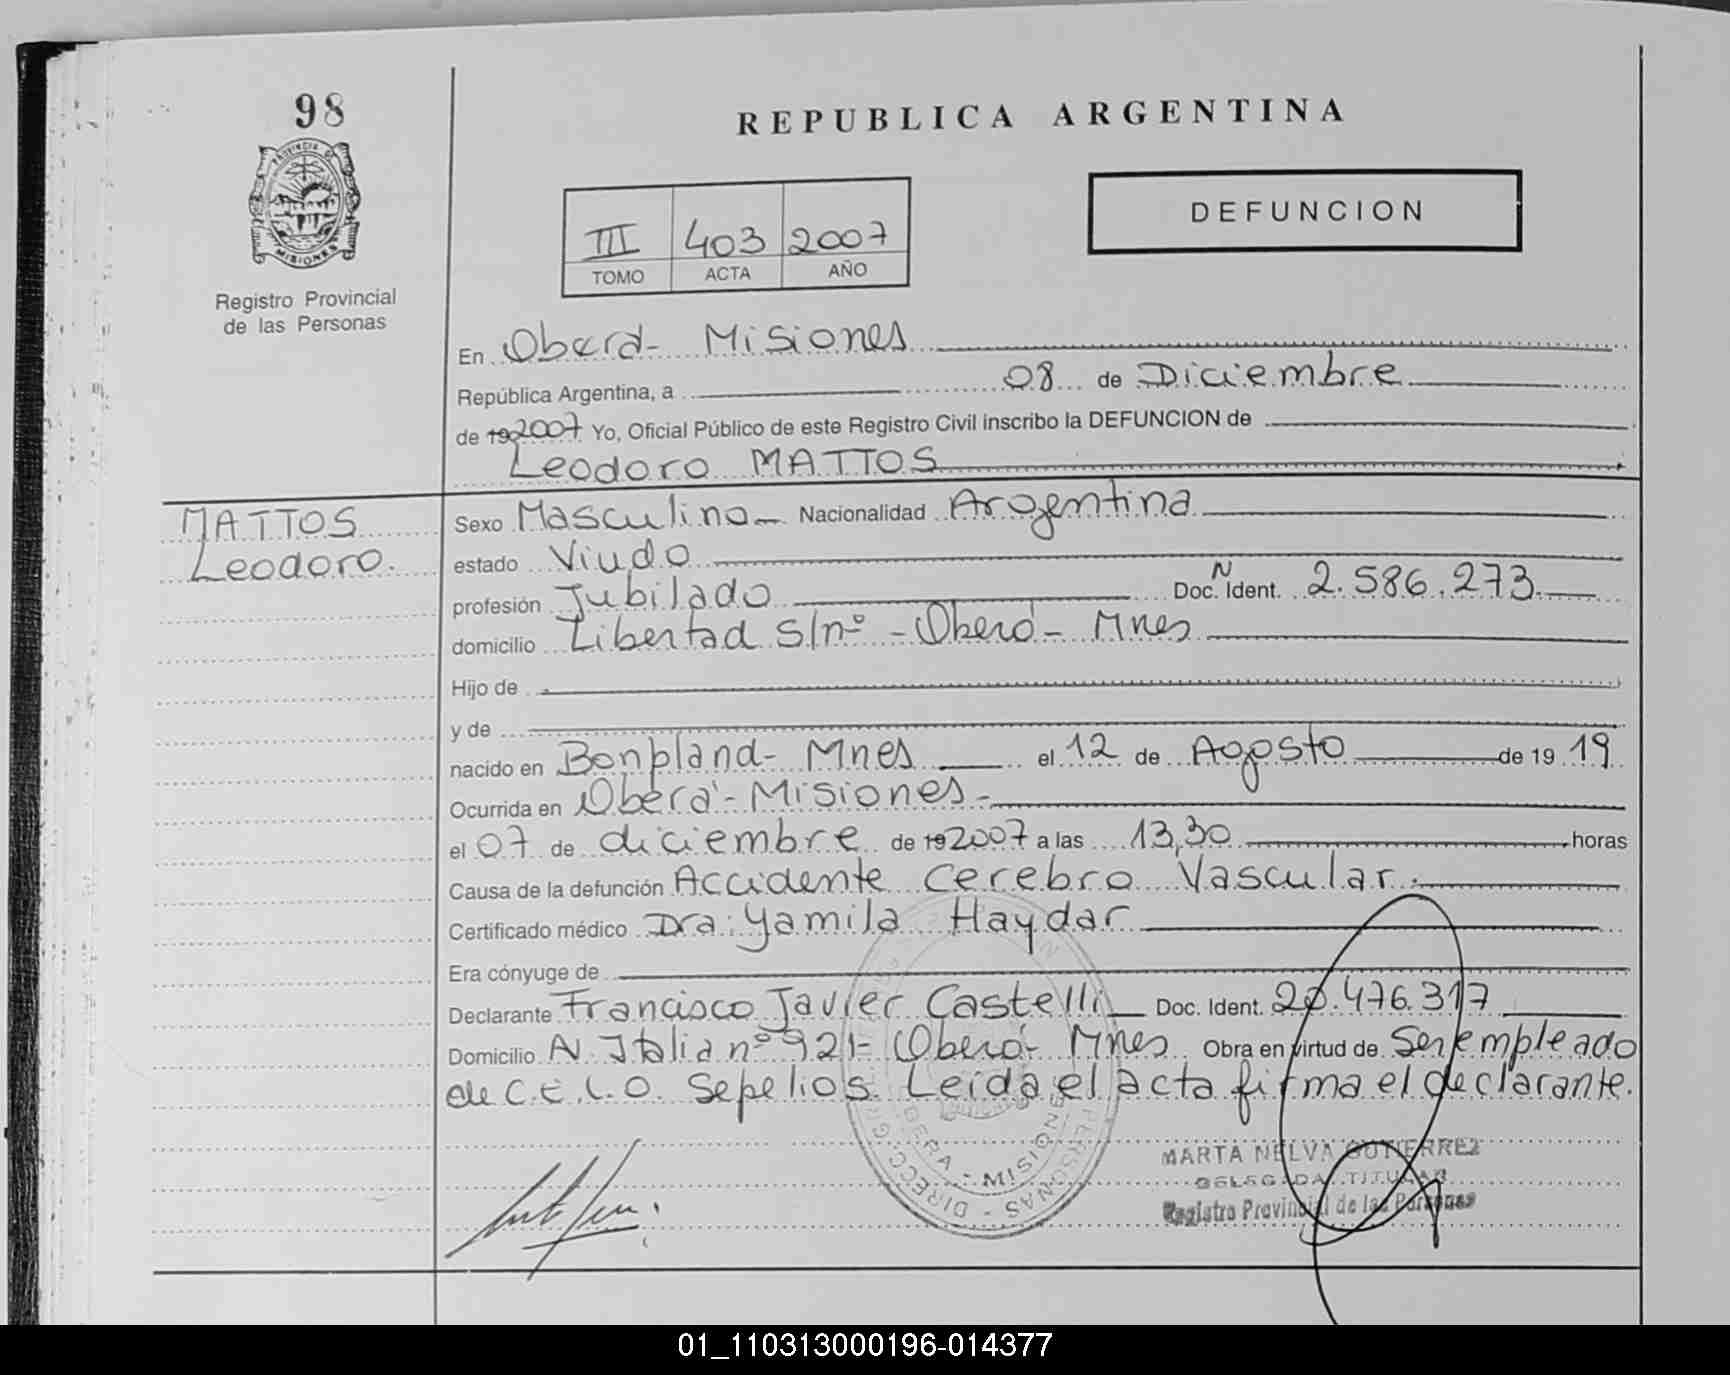 98
PROVINCIA DE
MISIONES
Registro Provincial
de las Personas
REPUBLICA ARGENTINA
III 403 2007
TOMO ACTA AÑO
DEFUNCION
En Oberá- Misiones
República Argentina, a 08 de Diciembre
de 19 2007 Yo, Oficial Público de este Registro Civil inscribo la DEFUNCION de
Leodoro MATTOS
MATTOS
Leodoro.
Sexo Masculino- Nacionalidad Argentina
estado Viudo
profesión Jubilado Doc. N Ident. 2.586.273
domicilio Libertad S/nº - Oberá - Mnes
Hijo de
y de
nacido en Bonpland- Mnes el 12 de Agosto de 19 19
Ocurrida en Oberá- Misiones-
el 07 de diciembre de 19 2007 a las 13,30 horas
Causa de la defunción Accidente Cerebro Vascular.
Certificado médico Dra: Yamila Haydar
Era cónyuge de
Declarante Francisco Javier Castelli Doc. Ident. 20.476.317
Domicilio Av. Italia nº 921- Oberá- Mnes Obra en virtud de Ser empleado
de C.E.L.O. Sepelios. Leída el acta firma el declarante.
MARTA NELVA GUTIERREZ
DELEGADA TITULAR
Registro Provincial de las Personas
01_110313000196-014377